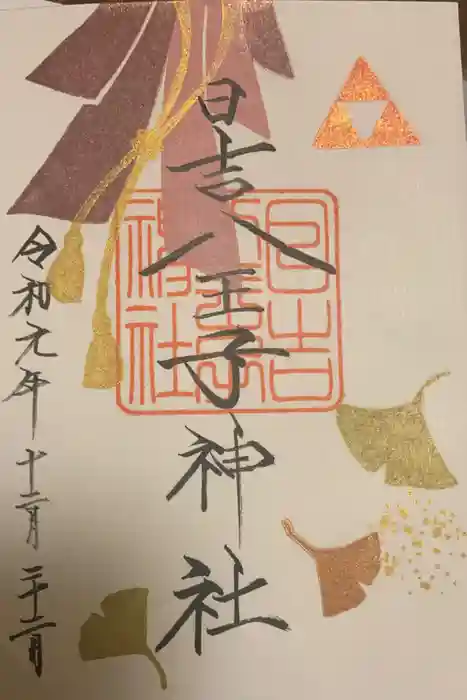 日吉八王子神社
令和元年十二月二十二日
日吉
八王子
神社